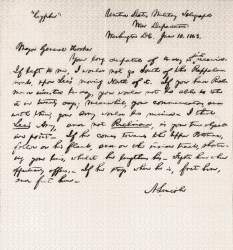 "Cypher" United States Military Telegraph
War Department
Washington DC. June 10. 1863.
Major General Hooker
Your long despatch of to-day is just received.
If left to me, I would not go South of the Rappahan-
nock, upon Lee's moving North of it. If you had Rich-
mond invested to-day, you would not be able to take
it in twenty days; meanwhile, your communications, and
with them, your army would be ruined. I think
Lee's Army, and not Richmond, is your true object-
ive point. If he comes towards the Upper Potomac,
follow on his flank, and on the inside track, short-
ening your lines, whilst he lengthens his. Fight him when
oppertunity offers. If he stays where he is, fret him,
and fret him.
A. Lincoln